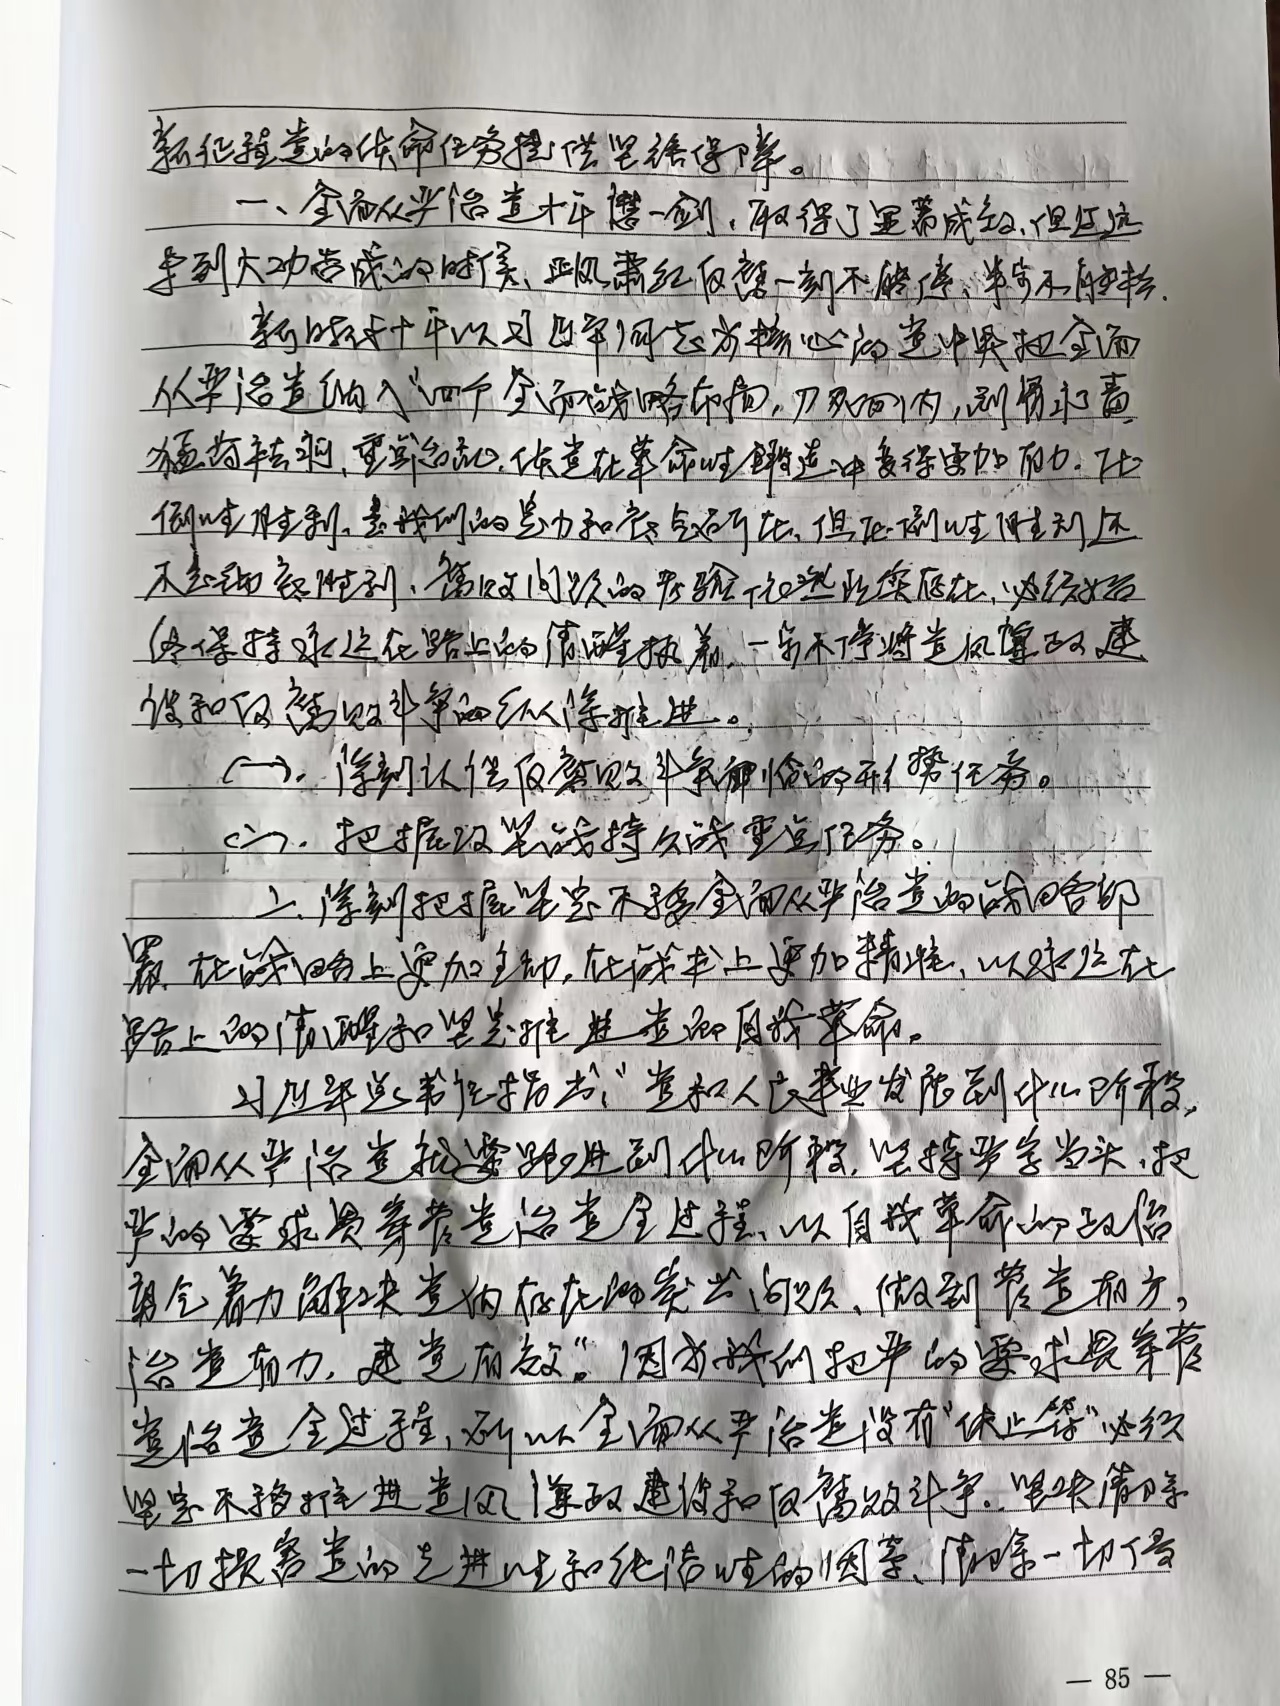 新征程党的使命任务提供坚强保障。
一、全面从严治党十年磨一剑，取得了显著成效，但还远
未到大功告成的时候、正风肃纪反腐一刻不能停、半步不能松.
新时代十年以习近平同志为核心的党中央把全面
从严治党纳入“四个全面战略布局，刀刃向内，刮骨疗毒
猛药去疴、重典治乱，使党在革命性锻造中变得更加有力.压
倒性胜利，是我们的 和 所在、但压倒性胜利还
不是 胜利、腐败问题的考验 然现实存在、必须始
终保持永远在路上的清醒执着、一步不停将党风廉政建
设和反腐败斗争向纵深推进。
(一)、深刻认识反腐败斗争 的形势任务。
(二)、把握攻坚战持久战重点任务。
二、深刻把握坚定不移全面从严治党的战略部
署、在战略上更加主动，在战术上更加精准、以永远在
路上的清醒和坚定推进党的自我革命。
习近平总书记指出：“党和人民事业发展到什么阶段，
全面从严治党就要跟进到什么阶段，坚持严字当头、把
严的要求贯穿管党治党全过程、以自我革命的政治
勇气着力解决党内存在的突出问题、做到管党有方，
治党有力，建党有效”。因为我们把严的要求贯穿管
党治党全过程，所以全面从严治党没有“休止符”必须
坚定不移推进党风廉政建设和反腐败斗争。坚决清除
一切损害党的先进性和纯洁性的因素、清除一切侵
— 85 —